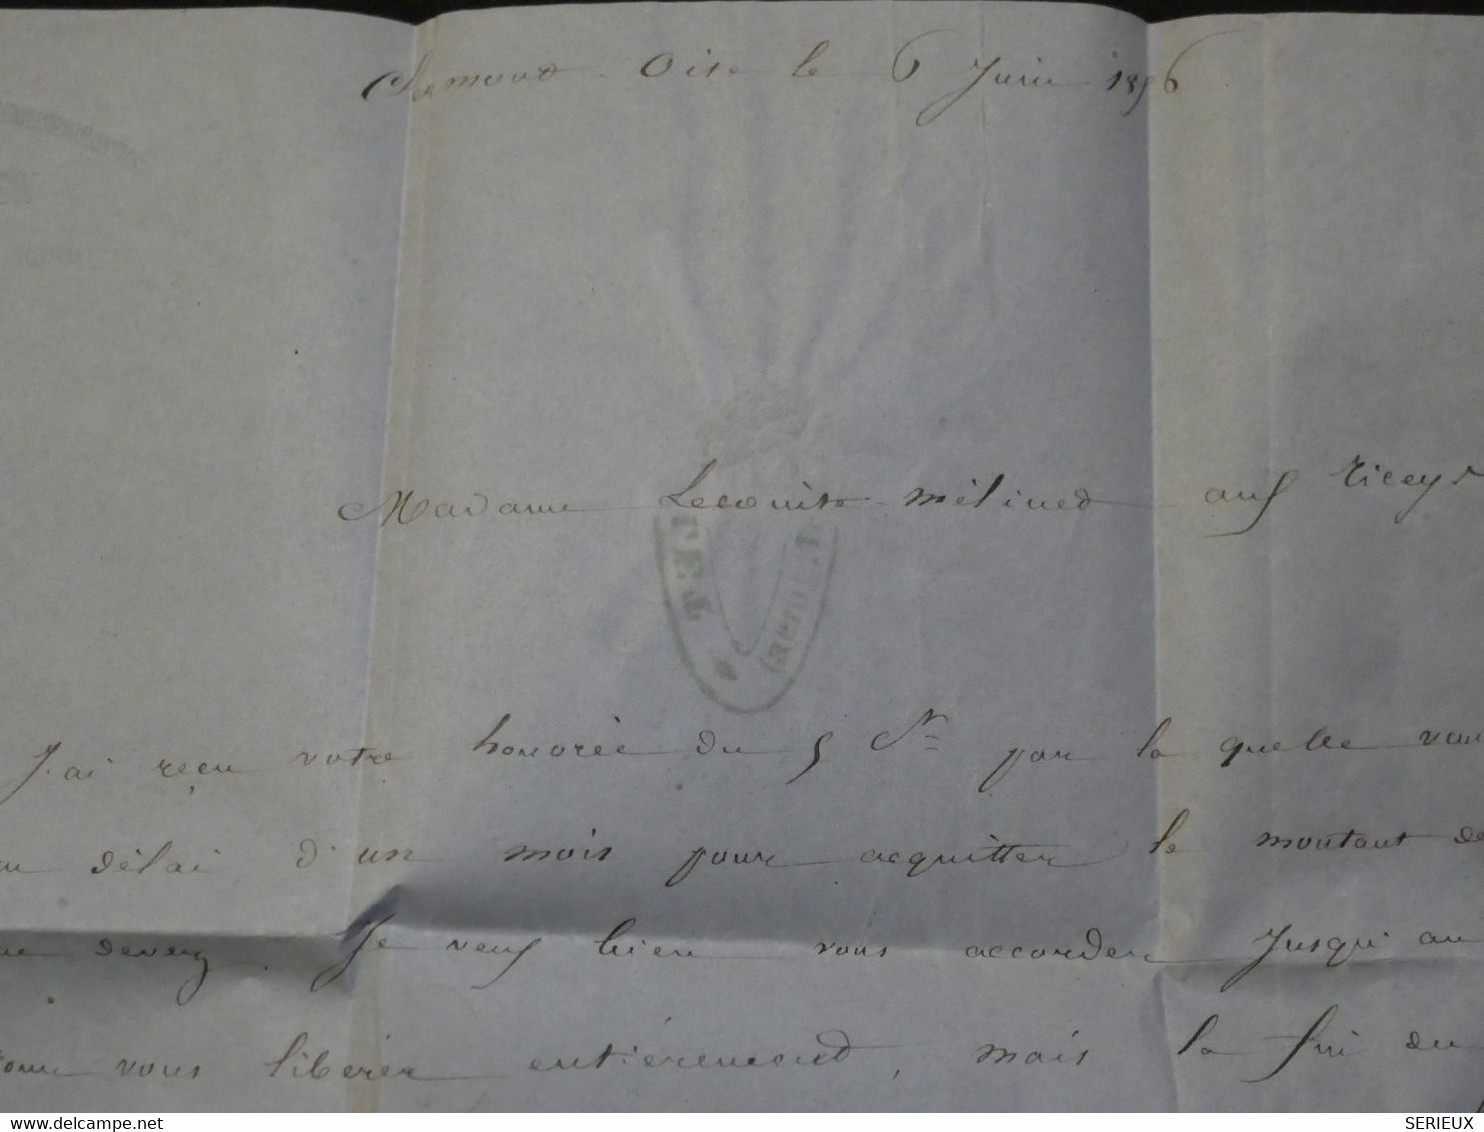 Oise le 6 Juin 1856
Madame Lecointe mélined aux riceys
J'ai reçu votre honorée du 5 Ct par la quelle vous
délai d'un mois pour acquitter le montant de
devez. Je veux bien vous accorder Jusqu'au
pour vous libérer entièrement, mais la fin du
TEL
SERIEUX